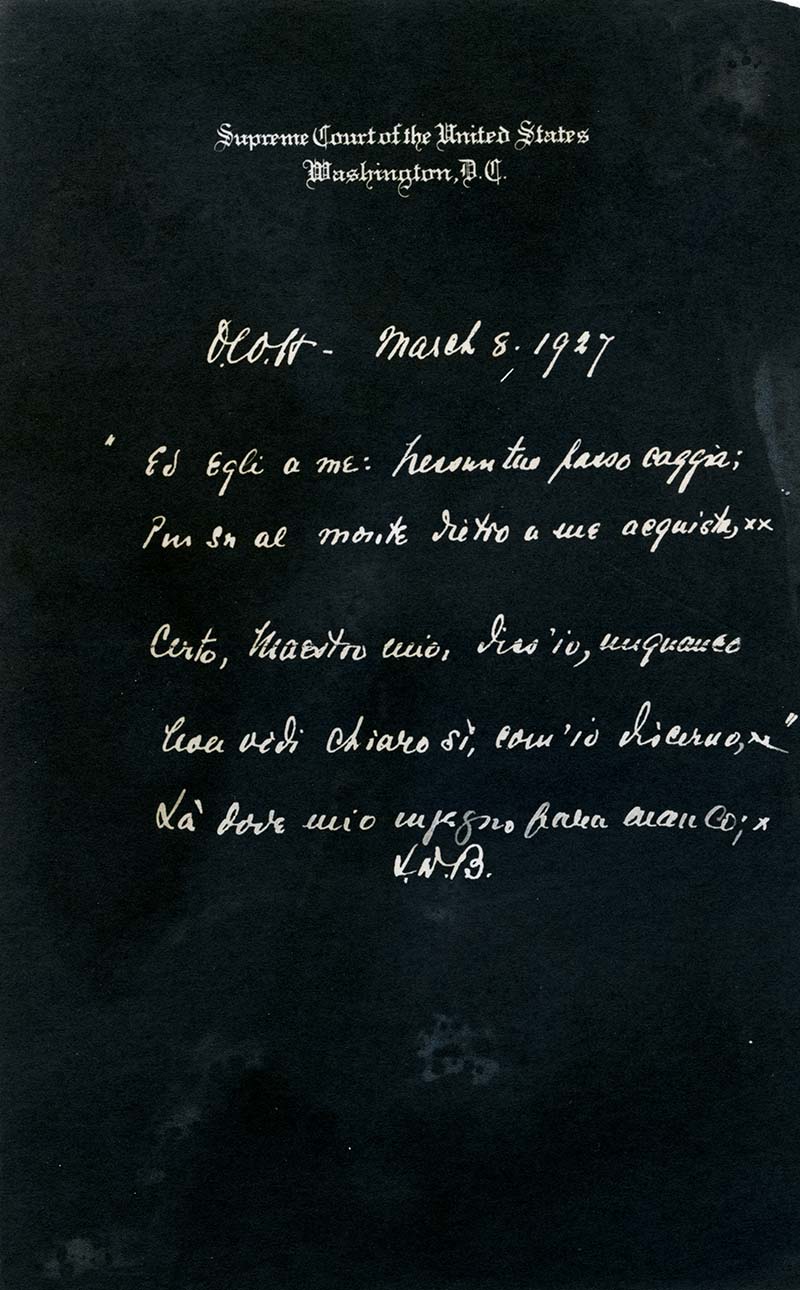 Supreme Court of the United States
Washington, D.C.
O.W.H - March 8, 1927
" Ed Egli a me: Nessun tuo passo caggia;
Pur su al monte dietro a me acquista, xx
Certo, Maestro mio, diss' io, unquanco
Non vidi chiaro sì, com' io discerno, x"
Là dove mio ingegno parea manco; x
L.D.B.